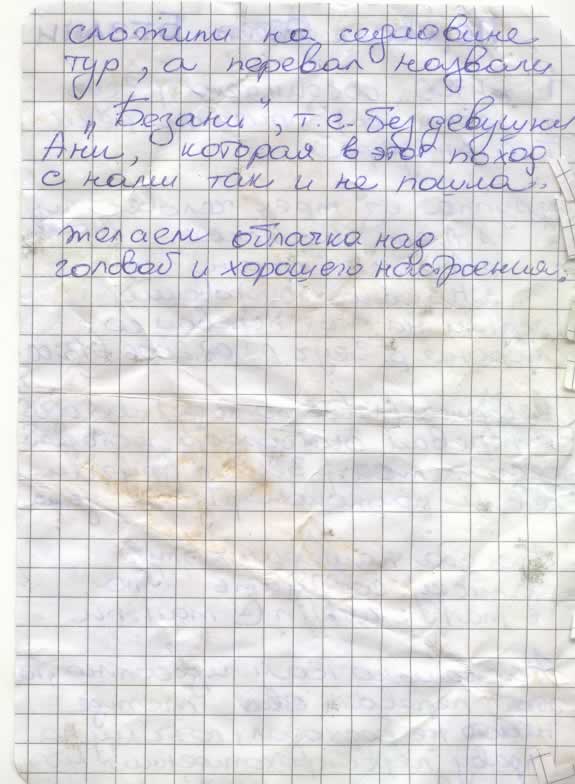 сложили на седловине
тур, а перевал назвали
„Безани", т.е. без девушки
Ани, которая в этот поход
с нами так и не пошла..
желаем облачка над
головой и хорошего настроения.